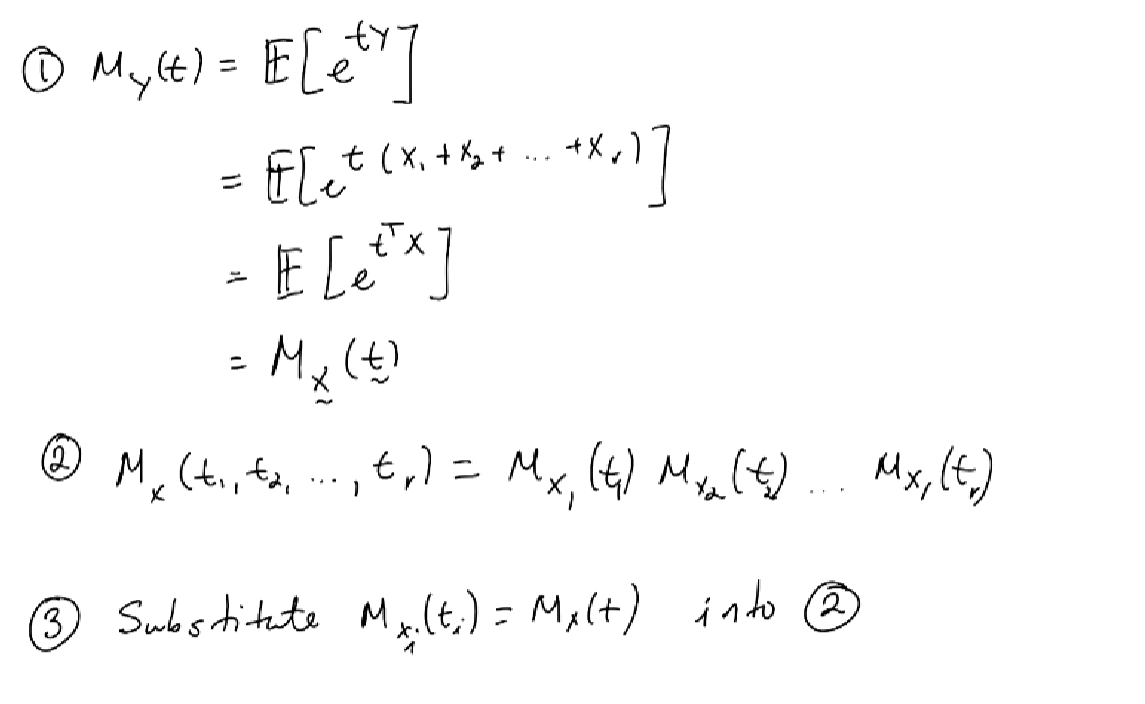 ① M_Y(t) = 𝔼[e^{tY}]
= 𝔼[e^{t(X_1+X_2+ ... +X_r)}]
= 𝔼[e^{t^T X}]
= M_X̰(t̰)
② M_X(t_1, t_2, ..., t_r) = M_{X_1}(t_1) M_{X_2}(t_2) ... M_{X_r}(t_r)
③ Substitute M_{X_i}(t_i) = M_X(t) into ②